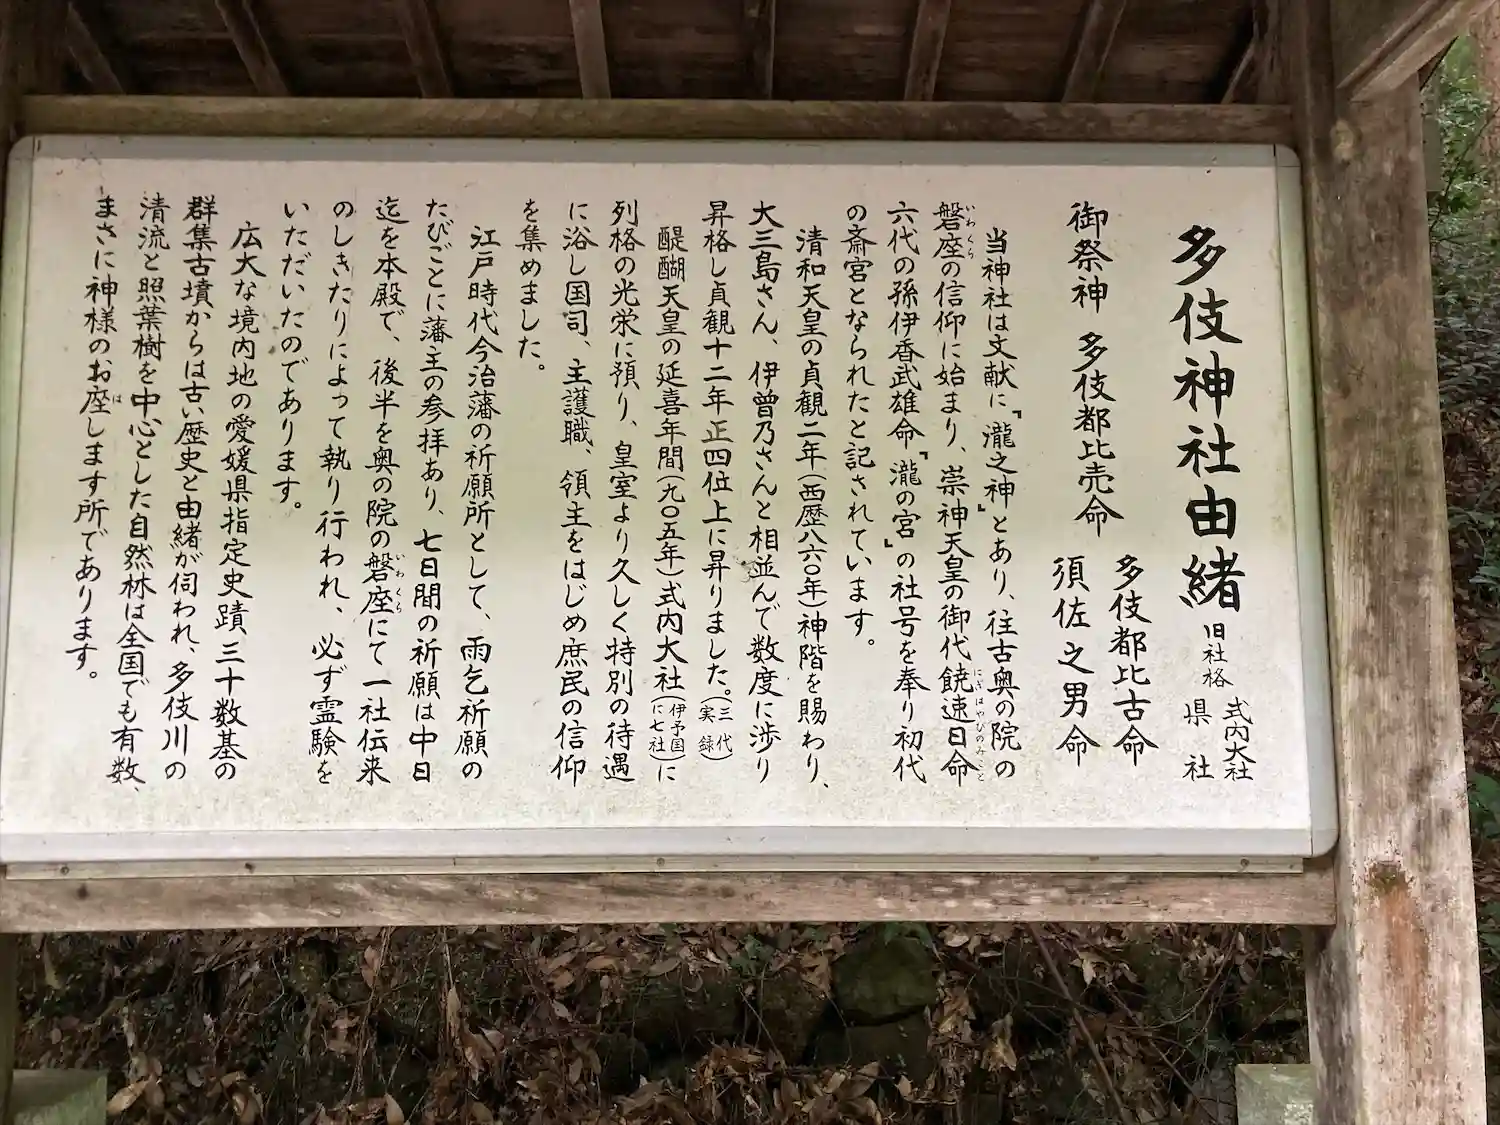 多伎神社由緒 旧社格 式内大社
県社
御祭神 多伎都比売命 多伎都比古命
須佐之男命
当神社は文献に『瀧之神』とあり、往古奥の院の
磐座の信仰に始まり、崇神天皇の御代饒速日命
六代の孫伊香武雄命『瀧の宮』の社号を奉り初代
の斎宮となられたと記されています。
清和天皇の貞観二年(西歴八六〇年)神階を賜わり、
大三島さん、伊曽乃さんと相並んで数度に渉り
昇格し貞観十二年正四位上に昇りました。(三代実録)
醍醐天皇の延喜年間(九〇五年)式内大社(伊予国に七社)に
列格の光栄に預り、皇室より久しく特別の待遇
に浴し国司、主護職、領主をはじめ庶民の信仰
を集めました。
江戸時代今治藩の祈願所として、雨乞祈願の
たびごとに藩主の参拝あり、七日間の祈願は中日
迄を本殿で、後半を奥の院の磐座にて一社伝来
のしきたりによって執り行われ、必ず霊験を
いただいたのであります。
広大な境内地の愛媛県指定史蹟三十数基の
群集古墳からは古い歴史と由緒が伺われ、多伎川の
清流と照葉樹を中心とした自然林は全国でも有数、
まさに神様のお座します所であります。